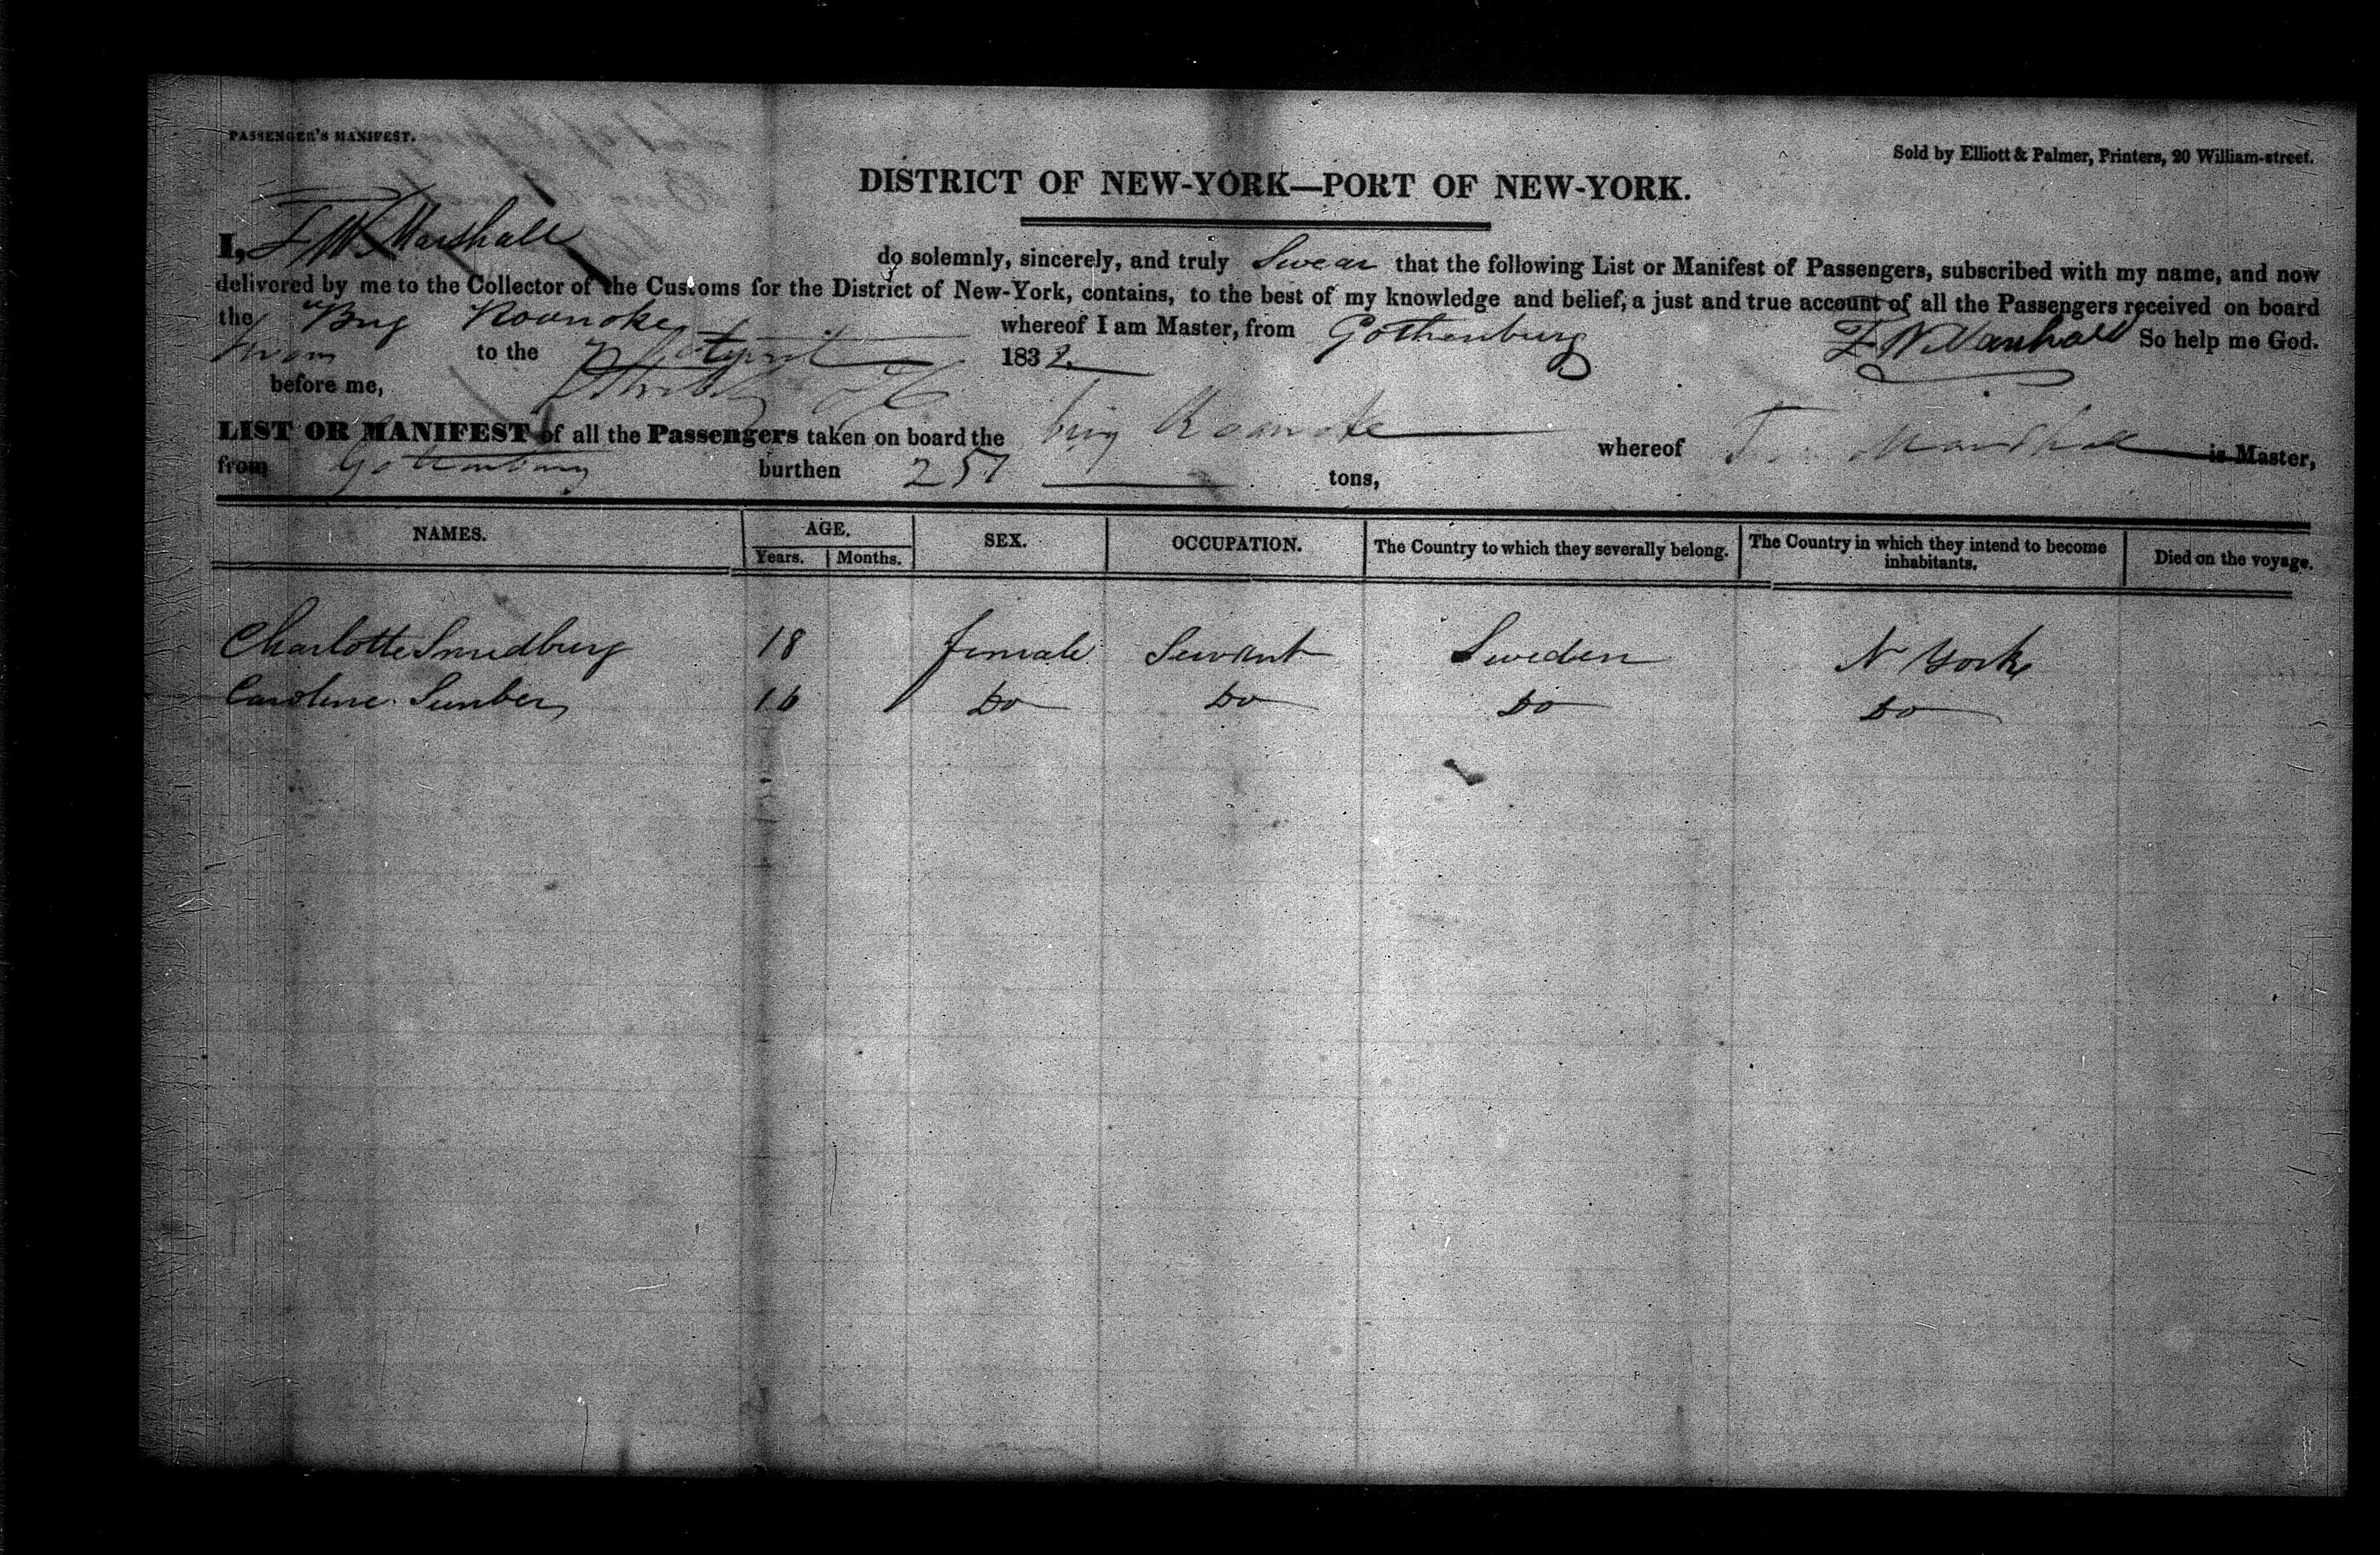 PASSENGER'S MANIFEST.
Sold by Elliott & Palmer, Printers, 20 William-street.
DISTRICT OF NEW-YORK—PORT OF NEW-YORK.
I, Marshall do solemnly, sincerely, and truly Swear that the following List or Manifest of Passengers, subscribed with my name, and now
delivered by me to the Collector of the Customs for the District of New-York, contains, to the best of my knowledge and belief, a just and true account of all the Passengers received on board
the Brig Roanoke whereof I am Master, from Gothenburg Marshall So help me God.
to the 1832
before me,
LIST OR MANIFEST of all the Passengers taken on board the brig Roanoke whereof Marshall is Master,
from burthen 257 tons,
NAMES. AGE. SEX. OCCUPATION. The Country to which they severally belong. The Country in which they intend to become inhabitants. Died on the voyage.
Years. Months.
Charlotte 18 female Servant Sweden N York
Caroline 16 Do Do Do Do